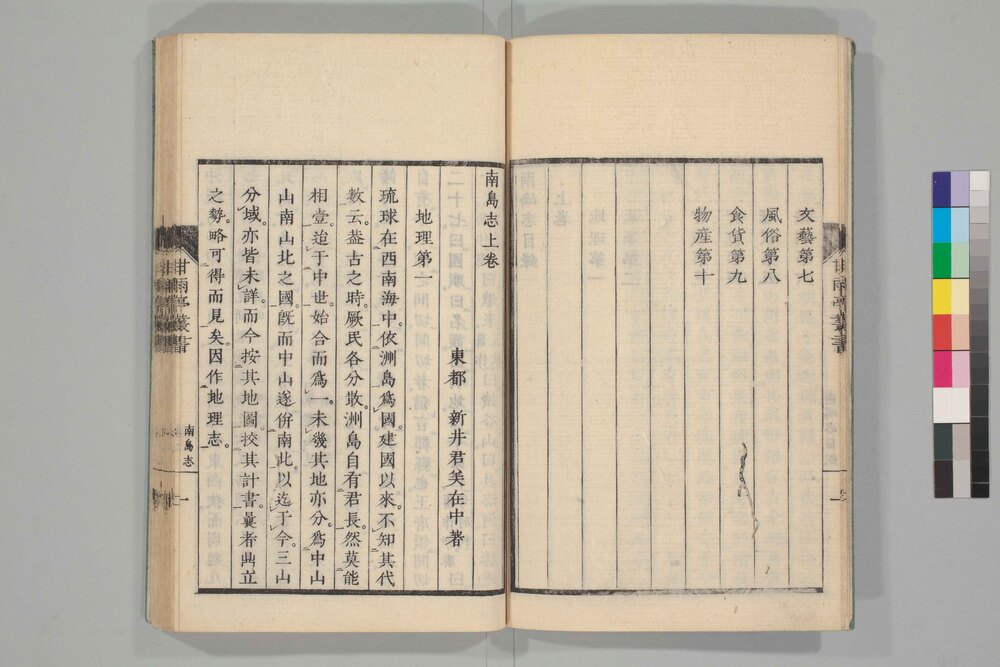 文藝第七
風俗第八
食貨第九
物産第十
甘雨亭叢書
南島志上卷
東都 新井君美在中著
地理第一
琉球在西南海中。依洲島爲國建國以來。不知其代
數云。蓋古之時。厥民各分散洲島自有君長。然莫能
相壹。迨于中世。始合而爲一。未幾其地亦分。爲中山
山南山北之國。既而中山遂併南北。以迄于今。三山
分域。亦皆未詳。而今按其地圖。挍其計書。曩者鼎立
之勢。略可得而見矣。因作地理志。
甘雨亭叢書
南島志
一